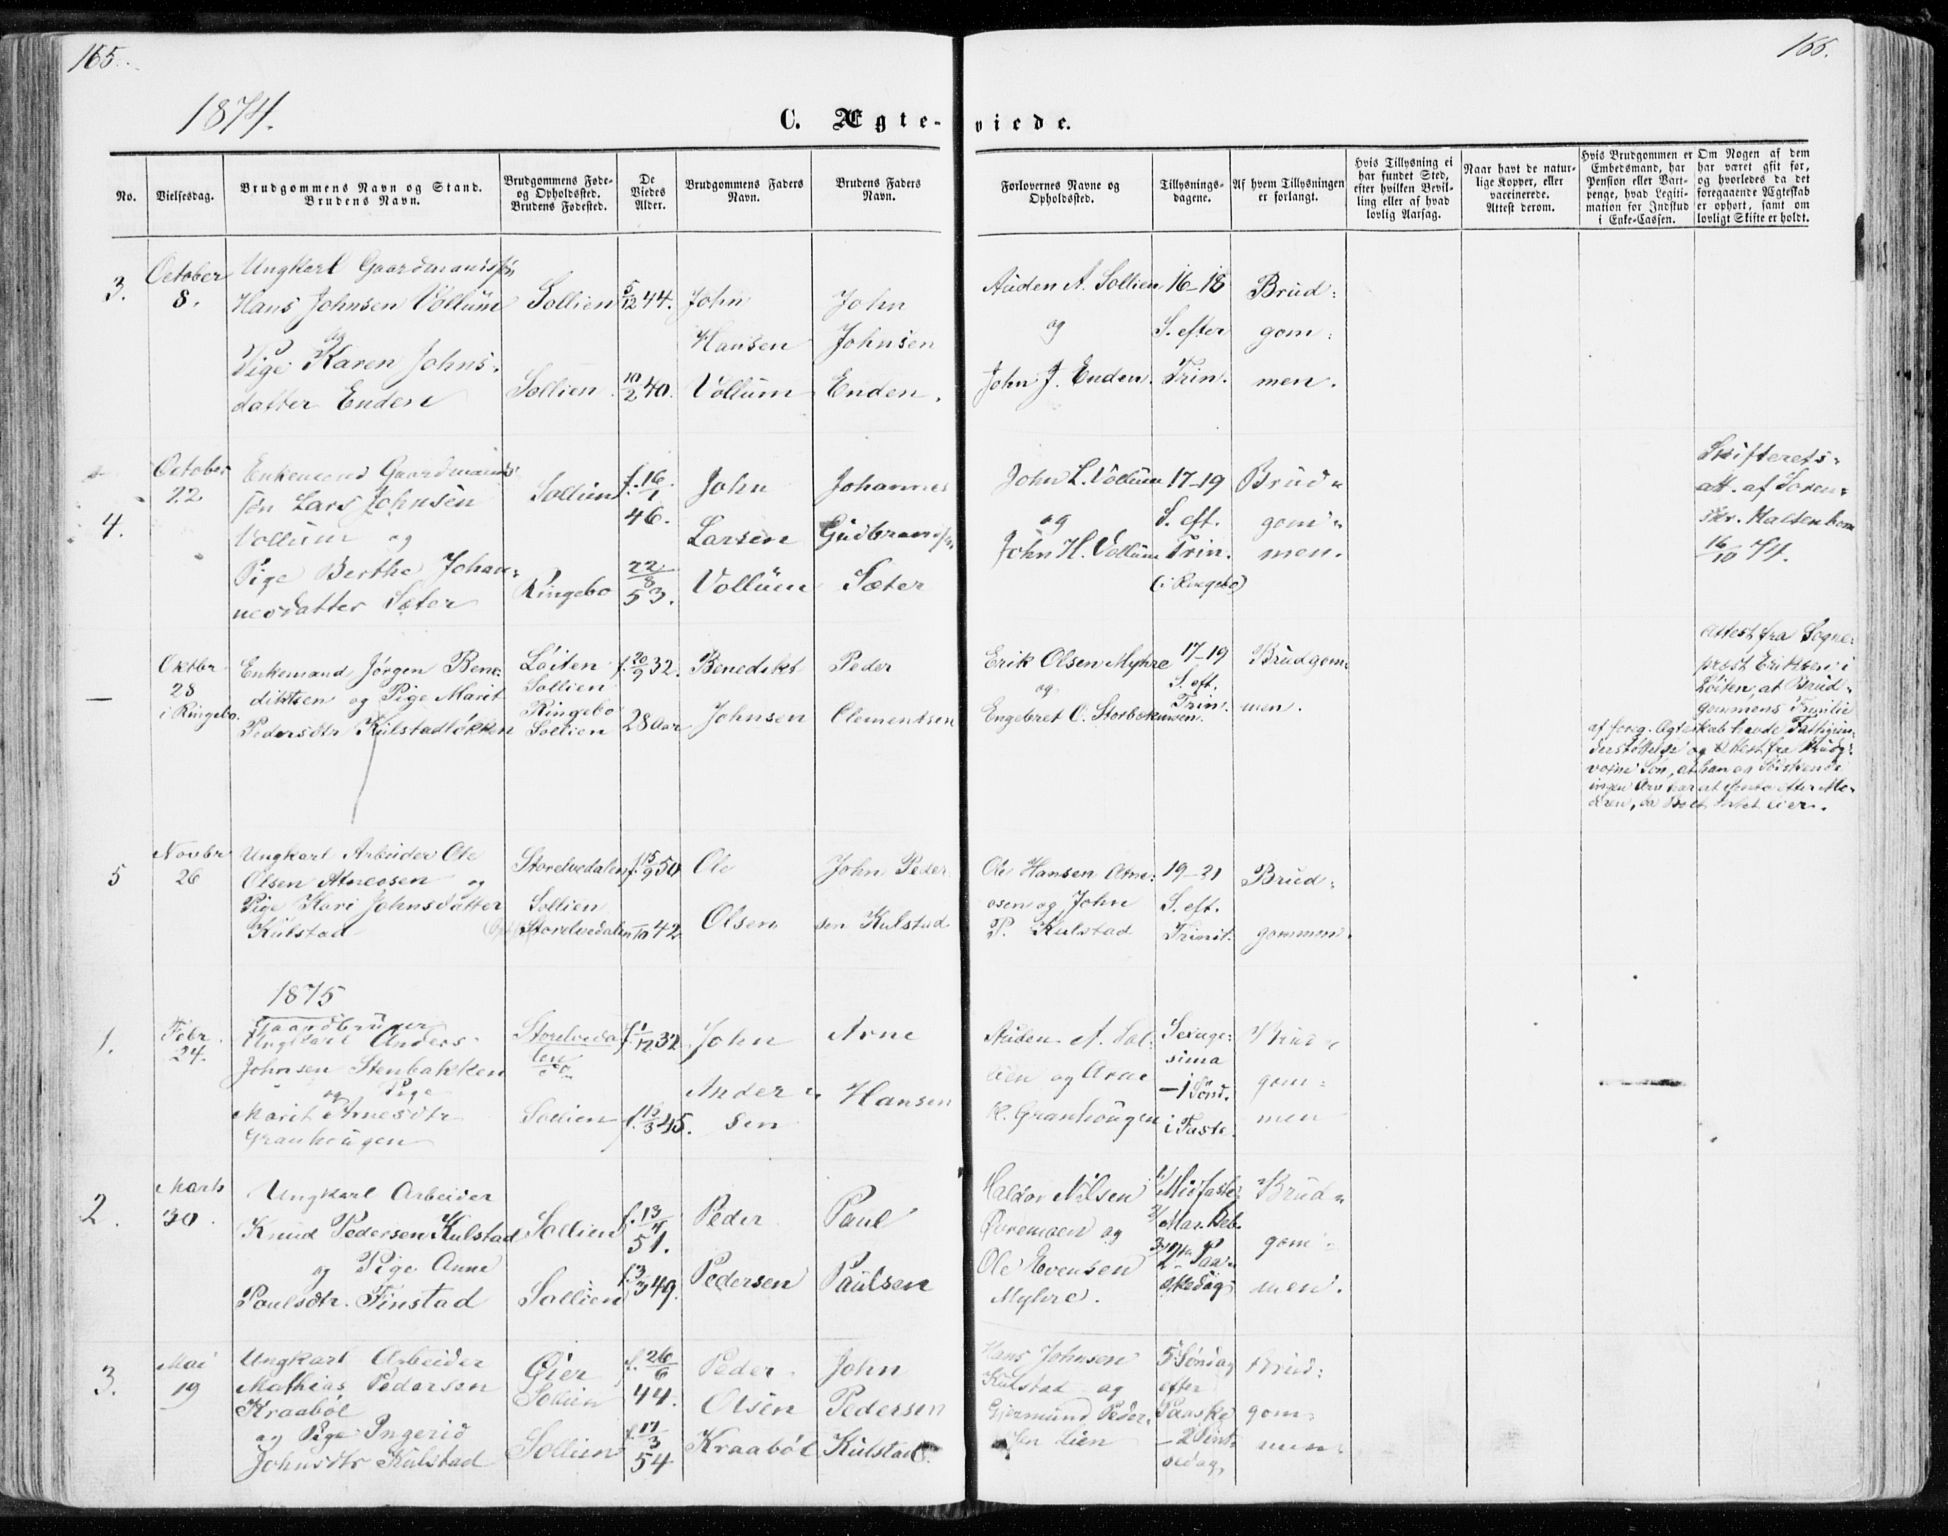 165.
166.
1874.
C. Ægte-viede.
No.
Vielsesdag.
Brudgommens Navn og Stand.
Brudens Navn.
Brudgommens Føde-
og Opholdssted.
Brudens Fødested.
De
Viedes
Alder.
Brudgommens Faders
Navn.
Brudens Faders
Navn.
Forlovernes Navne og
Opholdssted.
Tillysnings-
dagene.
Af hvem Tillysningen
er forlangt.
Hvis Tillysning ei
har fundet Sted,
efter hvilken Bevil-
ling eller af hvad
lovlig Aarsag.
Naar havt de natur-
lige Kopper, eller
vaccinerede.
Attest derom.
Hvis Brudgommen er
Embedsmand, har
Pension eller Vart-
penge, hvad Legiti-
mation for Indskud
i Enke-Cassen.
Om Nogen af dem
har været gift før,
og hvorledes da det
foregaaende Ægteskab
er ophørt, samt om
lovligt Skifte er holdt.
3.
October
8.
Ungkarl Gaardmandssøn
Hans Johnsen Vollum
og
Pige Karen Johns-
datter Enden
Sollien
Sollien
5/12 44.
10/2 40.
John
Hansen
Vollum
John
Johnsen
Enden.
Auden A. Sollien
og
John J. Enden.
16-18
S. efter
Trin.
Brud-
gom-
men.
4.
October
22
Enkemand Gaardmands-
søn Lars Johnsen
Vollum og
Pige Berthe Johan-
nesdatter Sæter
Sollien
Ringebo
f. 16/1
46.
22/8
53.
John
Larsen
Vollum
Johannes
Gudbrandsen
Sæter
John L. Vollum
og
John H. Vollum
17-19
S. eft.
Trin.
(i Ringebo)
Brud-
gom-
men.
Skifterets-
att. af Soren-
skr.
16/10 74.
Oktbr
28
i Ringebo.
Enkemand Jørgen Bene-
diktsen og Pige Marit
Pedersdtr Kulstadløkken
Løiten
Sollien
Ringebo
Sollien
f. 20/9 32.
28 Aar
Benedikt
Johnsen
Peder
Clementsen
Erik Olsen Myhre
og
Engebret O.
17-19
S. eft.
Trin.
Brudgom-
men.
Attest fra Sogne-
præst Eriksen i
Løiten, at Brud-
gommens Familie
af foreg. Ægteskab havde Fattigun-
derstøttelse og Attest fra
voxne Søn, at han og Søskende
ingen Arv har at vente efter Mo-
deren, da Boet Intet eier.
5
Novbr
26
Ungkarl Arbeider Ole
Olsen Atneosen og
Pige Kari Johnsdatter
Kulstad
Storelvedalen
Sollien
Storelvedalen
f. 15/9 50
/10 42
Ole
Olsen
John Peder-
sen Kulstad
Ole Hansen Atne-
osen og John
P. Kulstad
19-21
S. eft.
Trinit.
Brud-
gommen.
1875
1.
Febr.
24.
Gaardbruger
Ungkarl Anders
Johnsen Stenbakken
og Pige
Marit Arnesdtr
Granhougen
Storelveda-
len
Sollien
f. 1/12 32
f. 16/3 45.
John
Ander-
sen
Arne
Hansen
Auden A. Sol-
lien og Arne
K. Granhougen
Sexage-
sima
-1 Sønd.
i Faste.
Brud-
gom-
men
2.
Marts
30.
Ungkarl Arbeider
Knud Pedersen Kulstad
og Pige Anne
Paulsdtr. Finstad
Sollien
Sollien
f. 13/4
51.
49.
Peder
Pedersen
Paul
Paulsen
Haldor Nilsen
Øvremoen og
Ole Evensen
Myhre.
1/ Midfaste
2/ Mar. Beb.
3/ 2den Paa-
skedag
Brud-
gom-
men.
3.
Mai
19
Ungkarl Arbeider
Mathias Pedersen
Kraabøl
og Pige Ingerid
Johnsdtr Kulstad
Øier
Sollien
Sollien
f. 26/6
44.
f. 17/3
54
Peder
Olsen
Kraabøl
John
Pedersen
Kulstad.
Hans Johnsen
Kulstad og
Gjermund Peder-
sen Lien
5 Søndag
efter
Paaske
-2 Pint-
sedag.
Brud-
gom-
men.